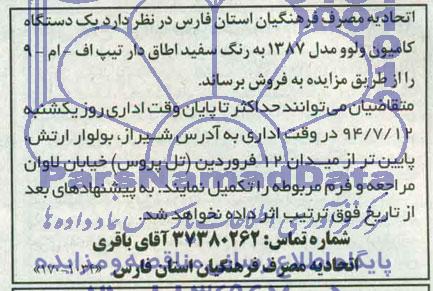 اتحادیه مصرف فرهنگیان استان فارس در نظر دارد یک دستگاه
کامیون ولوو مدل ۱۳۸۷ به رنگ سفید اطاق دار تیپ اف - ام - ۹
را از طریق مزایده به فروش برساند.
متقاضیان می توانند حداکثر تا پایان وقت اداری روز یکشنبه
۹۴/۷/۱۲ در وقت اداری به آدرس شیراز، بولوار ارتش،
پایین تر از میدان ۱۲ فروردین (تل پروس) خیابان للوان
مراجعه و فرم مربوطه را تکمیل نمایند. به پیشنهادهای بعد
از تاریخ فوق ترتیب اثر داده نخواهد شد.
شماره تماس: ۳۷۳۸۰۲۶۲ آقای باقری
اتحادیه مصرف فرهنگیان استان فارس
ParsNamadData
پایگاه اطلاع رسانی مناقصه و مزایده